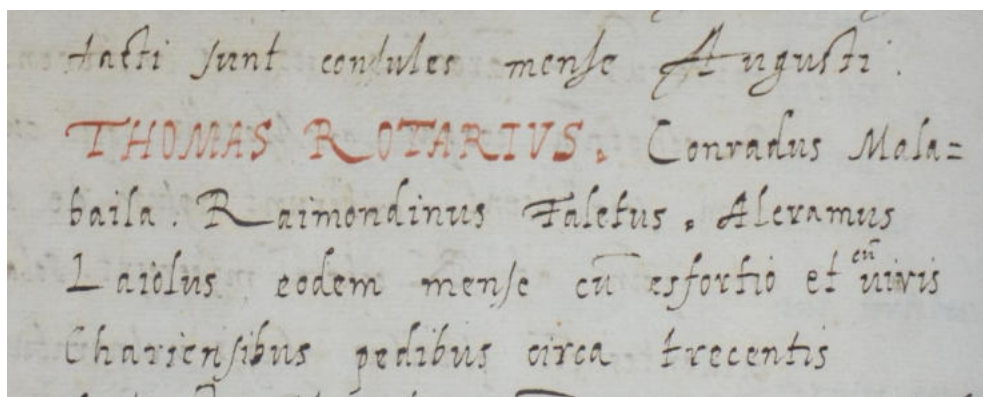 tacti sunt condules mense Augusti.
THOMAS ROTARIVS. Conradus Mala=
baila. Raimondinus Faletus. Aleramus
Laiolus eodem mense cū esfortio et cū uiris
Chariensibus pedibus circa trecentis